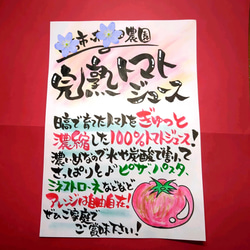 農園
完熟トマト
ジュース
日高で育ったトマトをぎゅっと
濃縮した100%トマトジュース!
濃いめなので水や炭酸で割って
さっぱりと♪ピザやパスタ、
ミネストローネなどなど
アレンジは自由自在!
ぜひご家庭で
ご賞味下さい!